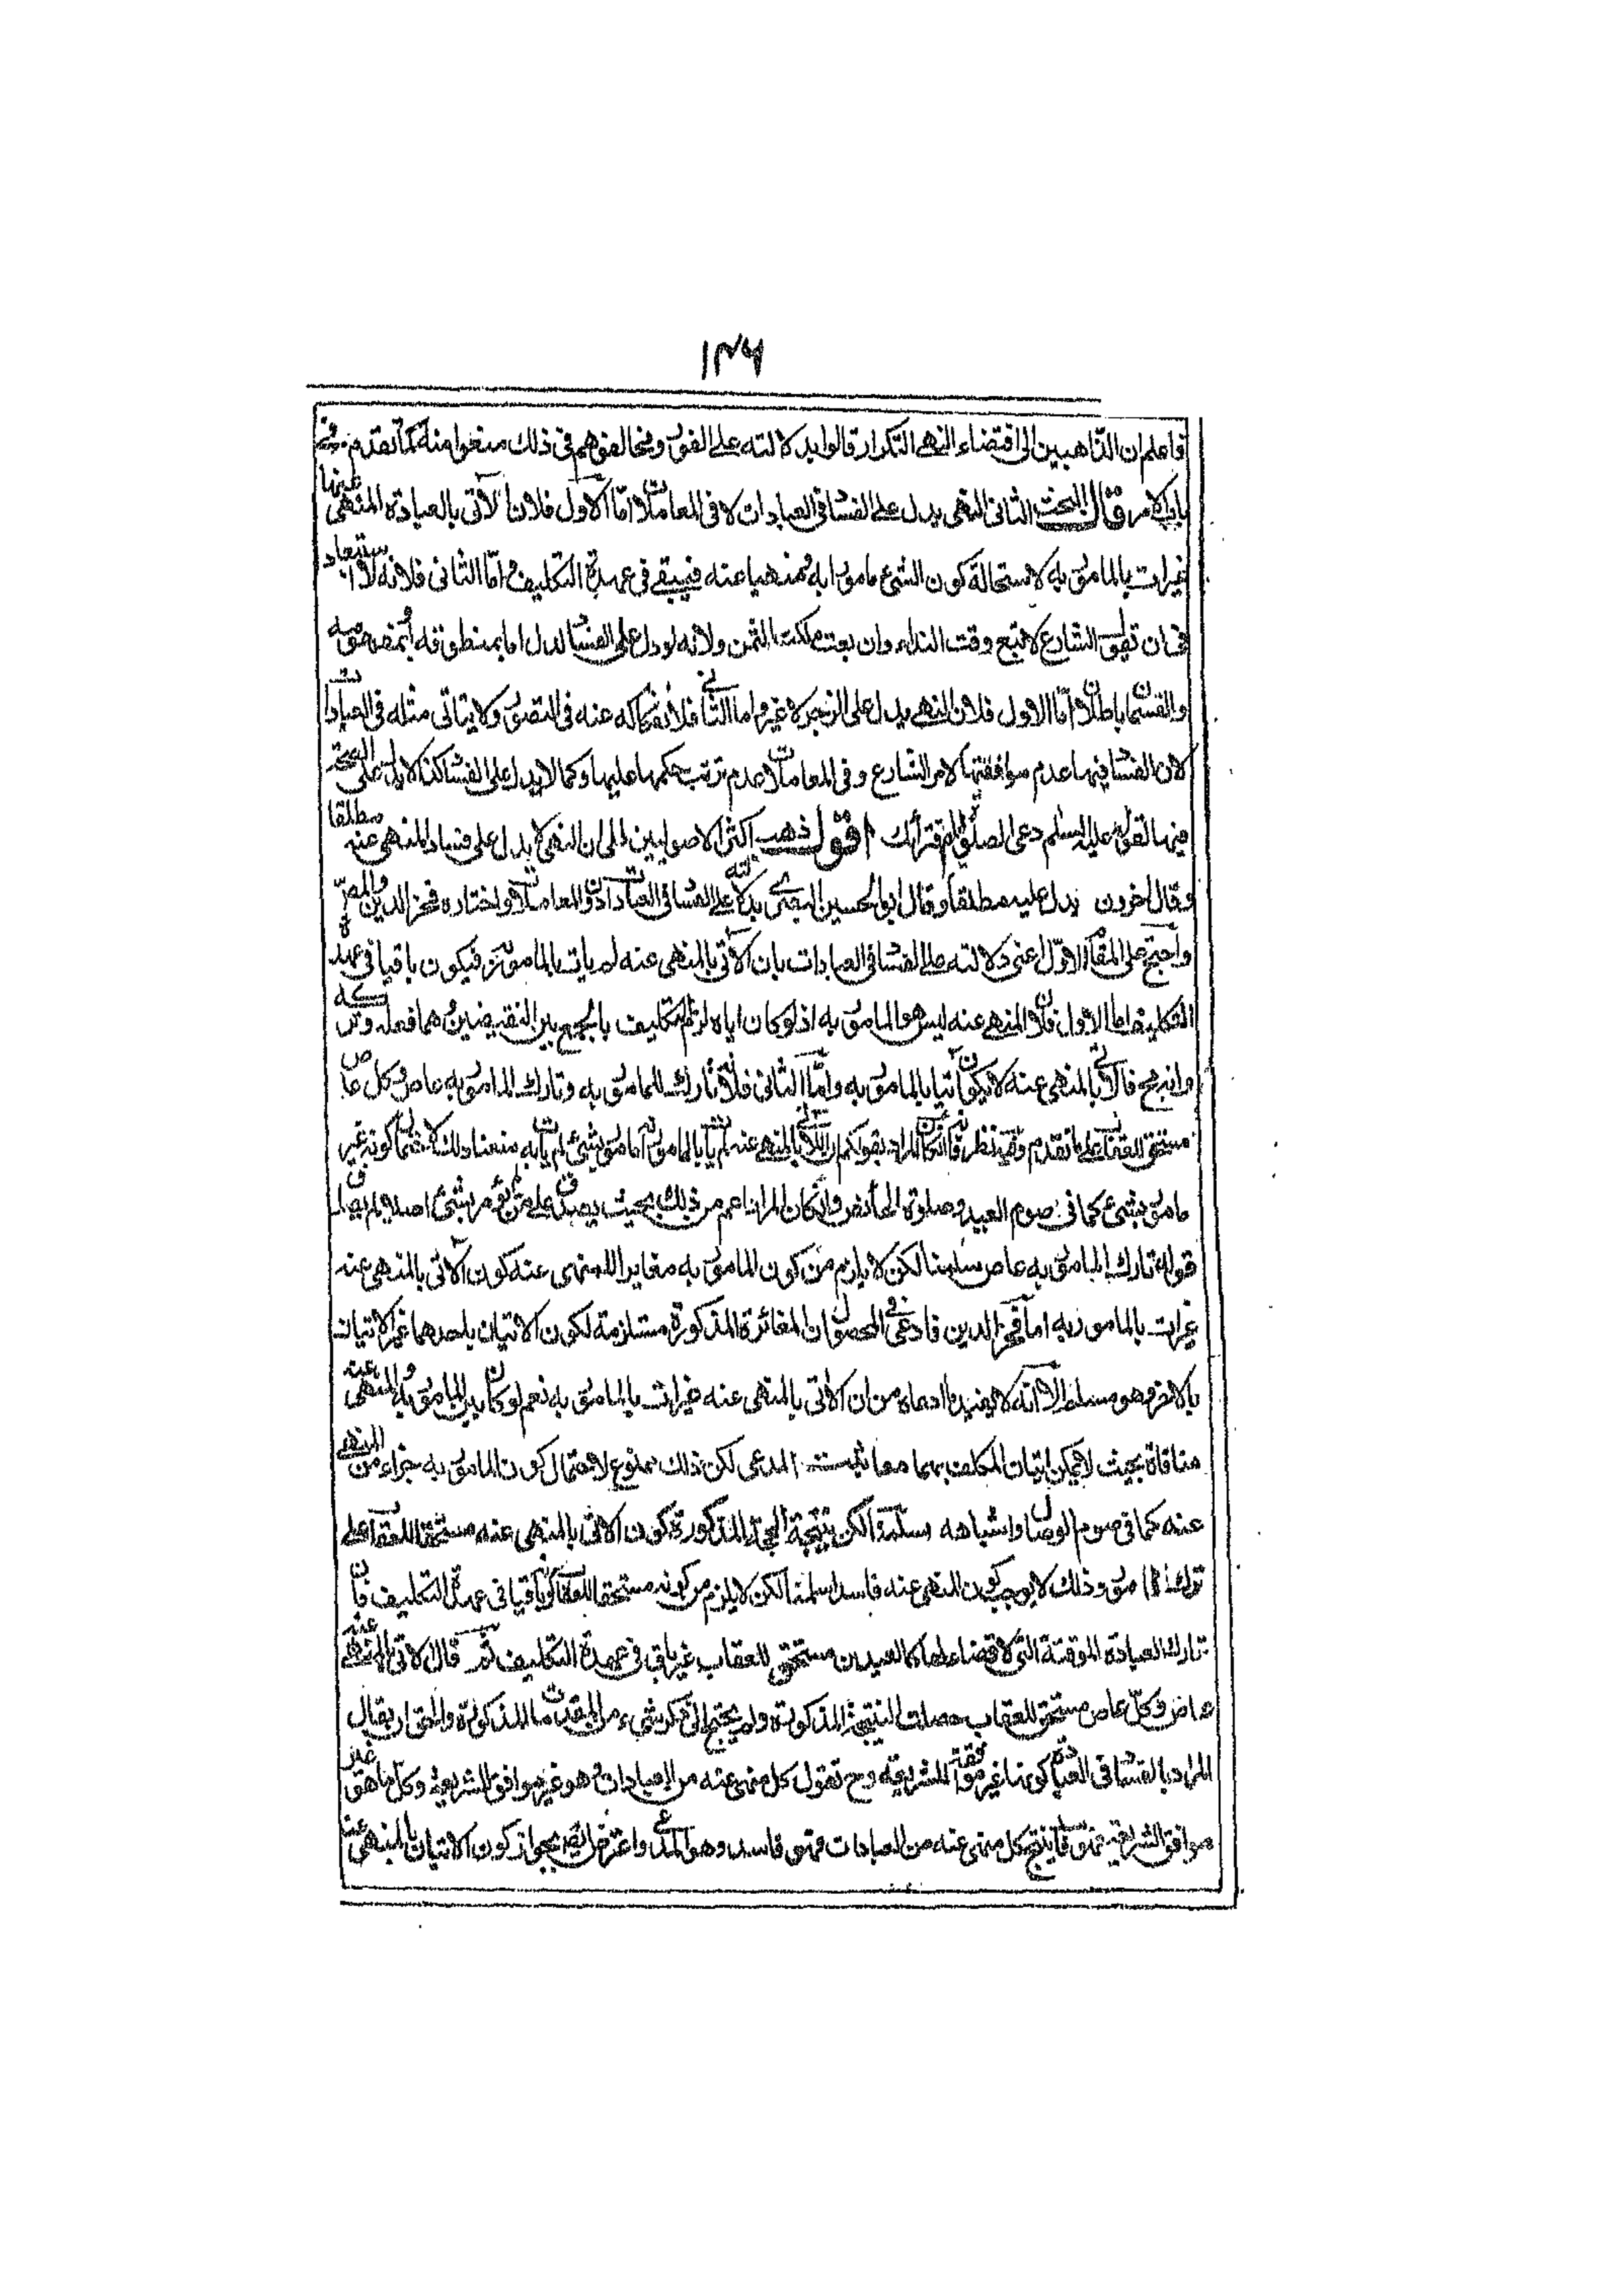 ١٣٦
فاعلم ان الذاهبين الى اقتضاء النهي التكرار قالوا بدلالته على الفور ومخالفوهم في ذلك منعوا منه كما تقدم في
باب الامر قال البحث الثاني النهي يدل على الفساد في العبادات لا في المعاملات اما الاول فلان الآتي بالعبادة المنهي عنها
غير آت بالمامور به لاستحالة كون الشيء مامورا به ومنهيا عنه فيبقى في عهدة التكليف واما الثاني فلانه لا استبعاد
في ان يقول الشارع لا تبع وقت النداء وان بعت ملكت الثمن ولانه لو دل على الفساد لدل اما بمنطوقه او بمفهومه
والقسمان باطلان اما الاول فلان النهي يدل على الزجر لا غير واما الثاني فلانفكاكه عنه في التصور ولا يتاتى مثله في العبادات
لان الفساد فيها عدم موافقتها لامر الشارع وفي المعاملات عدم ترتب حكمها عليها وكما لا يدل على الفساد كذا لا يدل على الصحة
فيها لقوله عليه السلام دعي الصلوة ايام اقرائك اقول ذهب اكثر الاصوليين الى ان النهي لا يدل على فساد المنهي عنه مطلقا
وقال اخرون يدل عليه مطلقا وقال ابو الحسين البصري بدلالته على الفساد في العبادات دون المعاملات واختاره فخر الدين والمصر
واحتج على المقام الاول اعني دلالته على الفساد في العبادات بان الآتي بالمنهي عنه لم يات بالمامور به فيكون باقيا في عهدة
التكليف اما الاول فلان المنهي عنه ليس هو المامور به اذ لو كان اياه لزم التكليف بالجمع بين النقيضين وهما فعله وتركه
وانه مح فالآتي بالمنهي عنه لا يكون آتيا بالمامور به واما الثاني فلانه تارك للمامور به وتارك المامور به عاص وكل عاص
مستحق للعقاب على ما تقدم وفيه نظر فانه ان كان المراد بقولكم ان الآتي بالمنهي عنه لم يات بالمامور به انه مامور بشيء لم يات به منعنا ذلك لاحتمال كونه غير
مامور بشيء كما في صوم العيد وصلوة الحائض وان كان المراد اعم من ذلك بحيث يصدق على من لم يؤمر بشيء اصلا لم يصدق
قوله تارك المامور به عاص سلمنا لكن لا يلزم من كون المامور به مغايرا للمنهي عنه كون الآتي بالمنهي عنه
غير آت بالمامور به اما فخر الدين فادعى في المحصول ان المغائرة المذكورة مستلزمة لكون الاتيان باحدهما غير الاتيان
بالاخر وهو مسلم الا انه لا يفيد ما ادعاه من ان الآتي بالمنهي عنه غير آت بالمامور به نعم لو كان بين المامور به والمنهي عنه
منافاة بحيث لا يمكن اتيان المكلف بهما معا ثبت المدعى لكن ذلك ممنوع لاحتمال كون المامور به جزاء من المنهي
عنه كما في صوم الوصال واشباهه سلمنا لكن نتيجة الحجة المذكورة كون الآتي بالمنهي عنه مستحقا للعقاب على
ترك المامور وذلك لا يوجب كون المنهي عنه فاسدا سلمنا لكن لا يلزم من كونه مستحقا للعقاب كونه باقيا في عهدة التكليف فان
تارك العبادة الموقتة التي لا قضاء لها كالعيدين مستحق للعقاب غير باق في عهدة التكليف ثم قال الآتي بالمنهي عنه
عاص وكل عاص مستحق للعقاب حصلت النتيجة المذكورة ولم يحتج الى ذكر شيء من المقدمات المذكورة والحق ان يقال
المراد بالفساد في العبادة كونها غير موافقة للشريعة وح نقول كل منهي عنه من العبادات هو غير موافق للشريعة وكل ما هو غير
موافق الشريعة فهو فاسد ينتج كل منهي عنه من العبادات فهو فاسد وهو المدعى واعترض ايضا بجواز كون الاتيان بالمنهي عنه